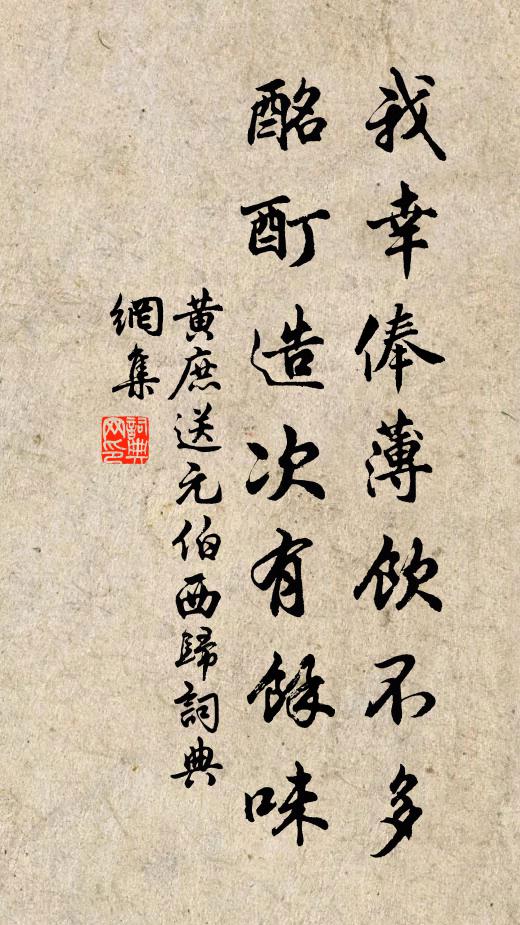 我幸俸薄飲不多
酩酊造次有餘味
黄庶送元伯西歸詞典
網集
詞典
网印